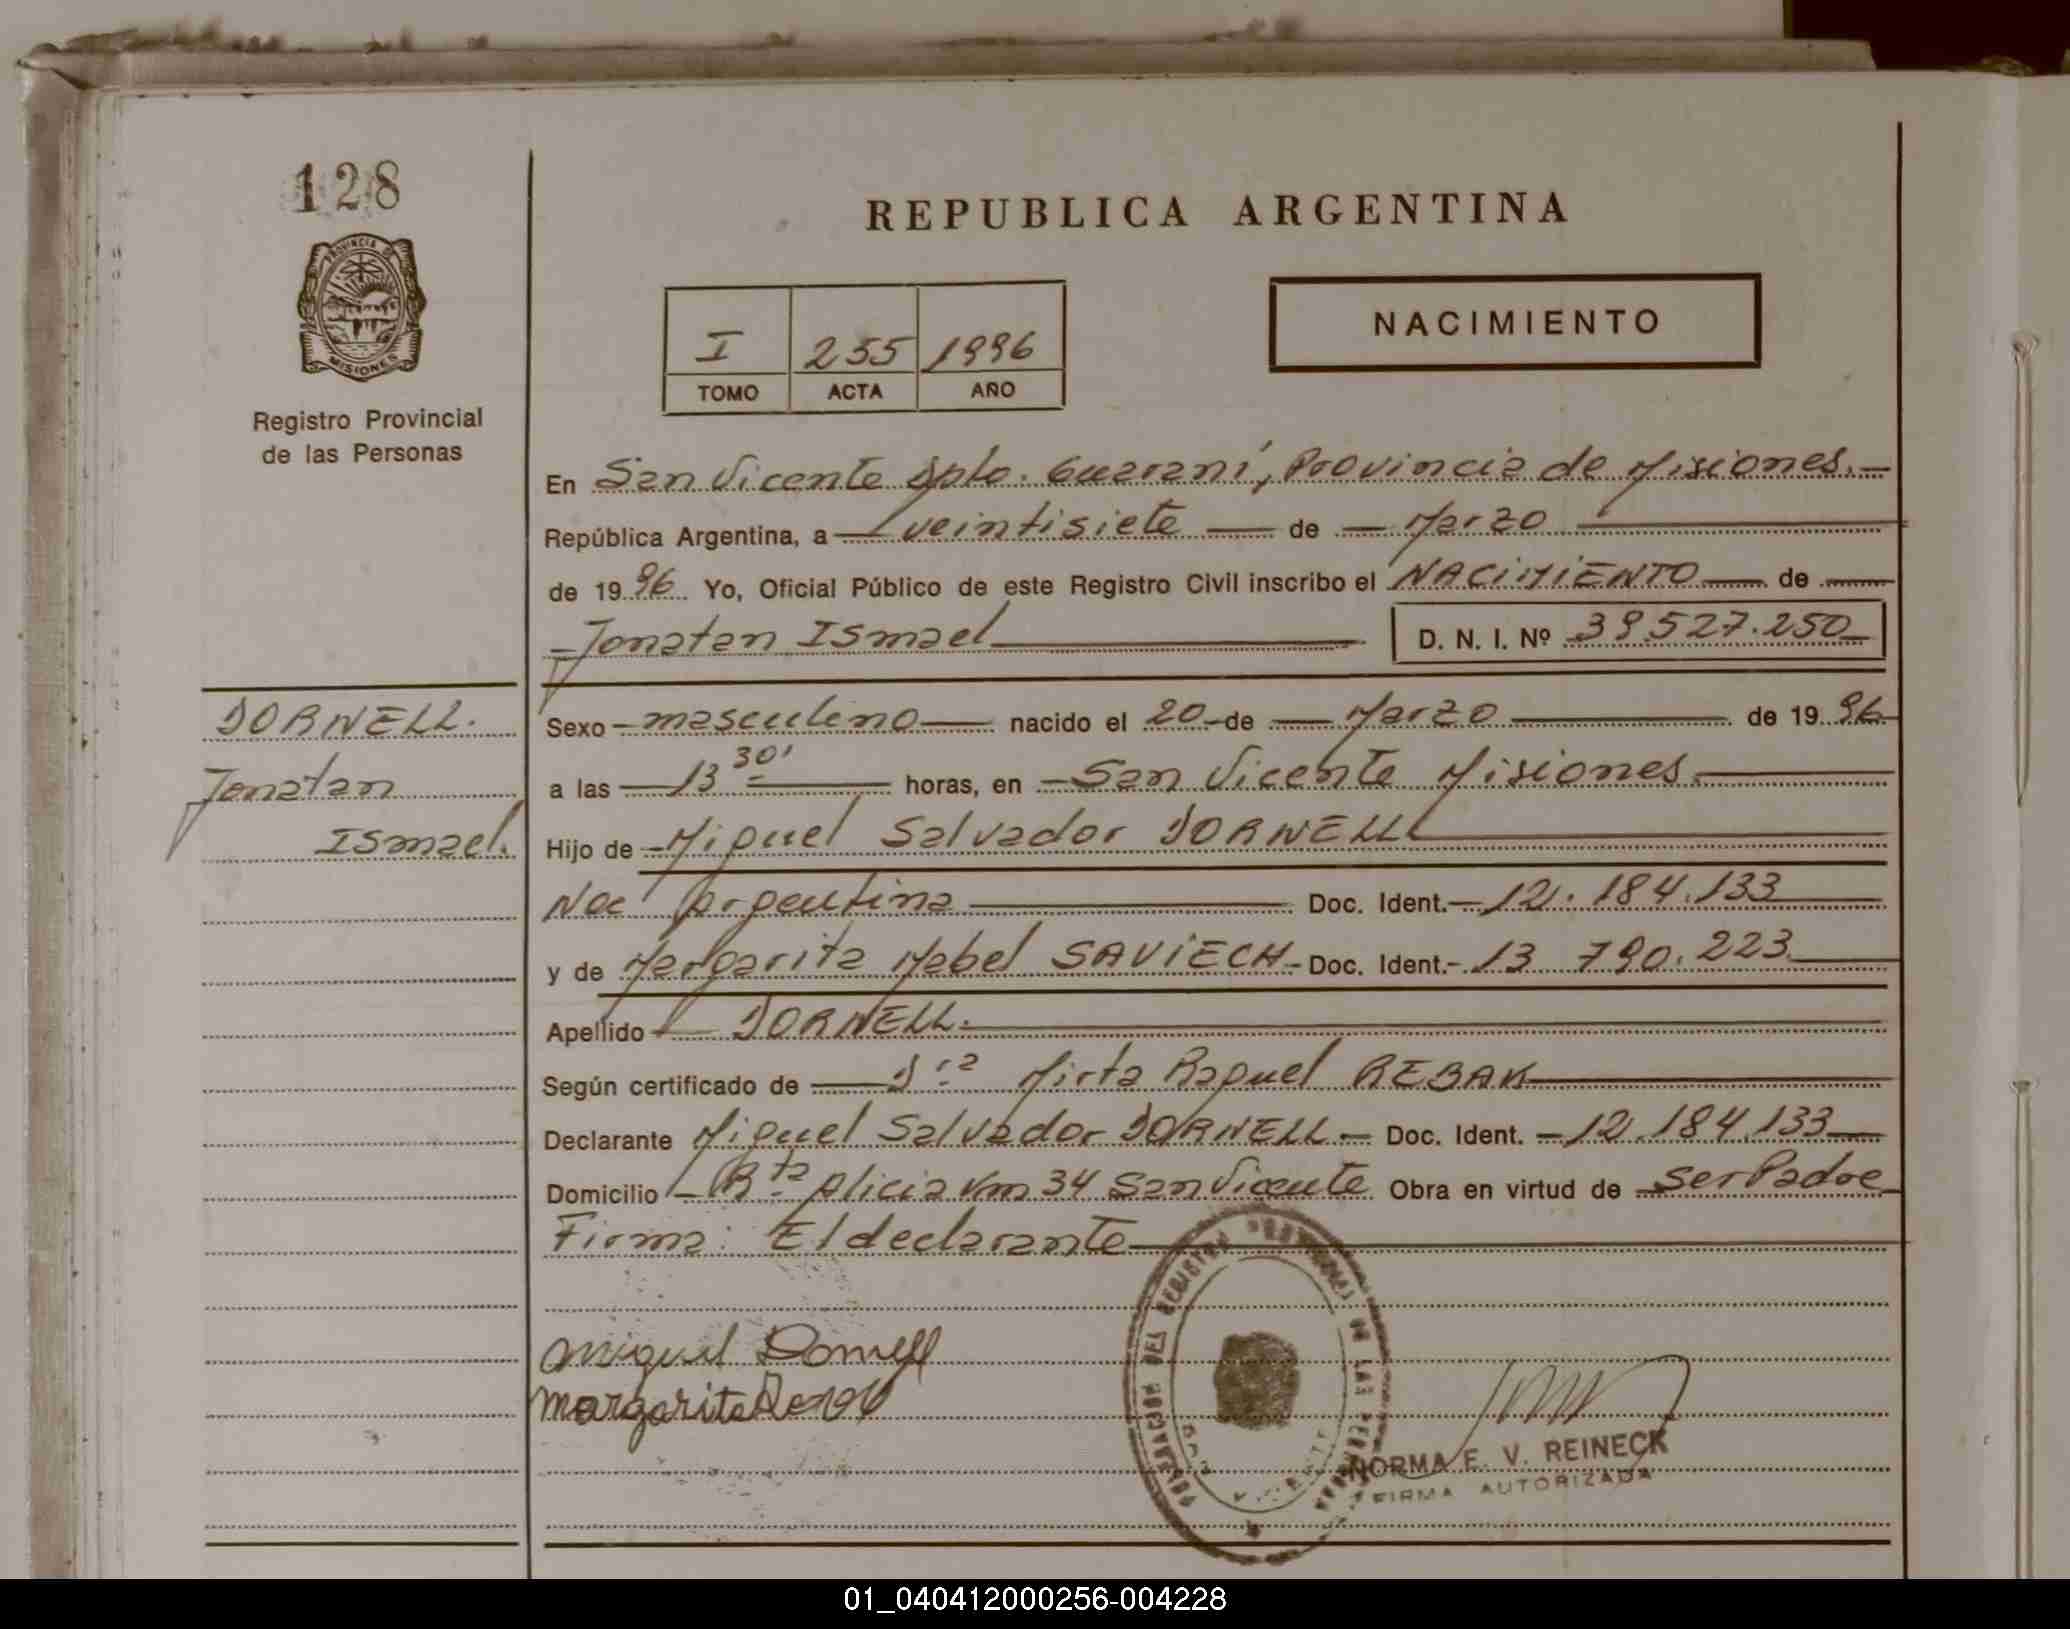 128
REPUBLICA ARGENTINA
PROVINCIA DE
MISIONES
NACIMIENTO
I 255 1996
TOMO ACTA AÑO
Registro Provincial
de las Personas
En San Vicente Dpto. Guaraní, Provincia de Misiones.
República Argentina, a veintisiete de Marzo
de 1996 Yo, Oficial Público de este Registro Civil inscribo el NACIMIENTO de
Jonatan Ismael D. N. I. Nº 39.527.250
DORNELL.
Jonatan
Ismael.
Sexo masculino nacido el 20 de Marzo de 1996
a las 13 30' horas, en San Vicente Misiones.
Hijo de Miguel Salvador DORNELL
Nac Argentina Doc. Ident. 12.184.133
y de Margarita Mabel SAVIECH Doc. Ident. 13 790.223
Apellido DORNELL.
Según certificado de Dra Mirta Raquel REBAK
Declarante Miguel Salvador DORNELL Doc. Ident. 12.184.133
Domicilio Rta Alicia Km 34 San Vicente Obra en virtud de ser Padre
Firma: El declarante
Miguel Dornell
Margarita
DELEGACION DEL REGISTRO PROVINCIAL DE LAS PERSONAS
NORMA E. V. REINECK
FIRMA AUTORIZADA
01_040412000256-004228